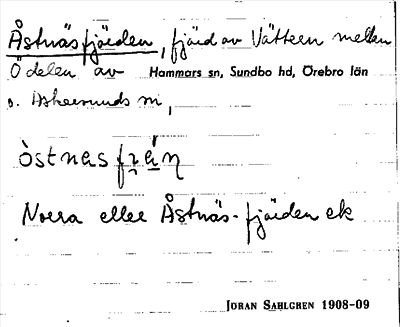 Åstnäsfjärden, fjärd av Vättern mellan
Ö delen av Hammars sn, Sundbo hd, Örebro län
o. Askersunds sn,
òstnasfrán
Norra eller Åstnäs-fjärden ek
JORAN SAHLGREN 1908-09